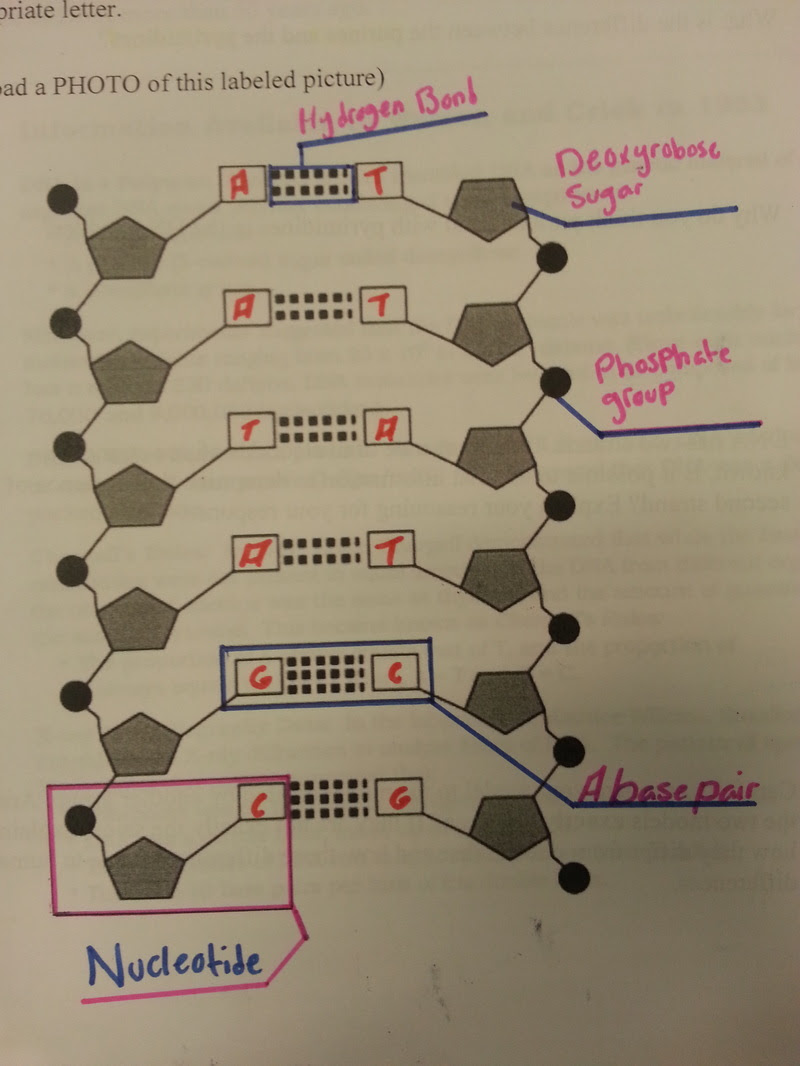 priate letter.
ad a PHOTO of this labeled picture)
Hydrogen Bond
Deoxyrobose
Sugar
A T
A T
Phosphate
group
T A
A T
G C
A base pair
C G
Nucleotide